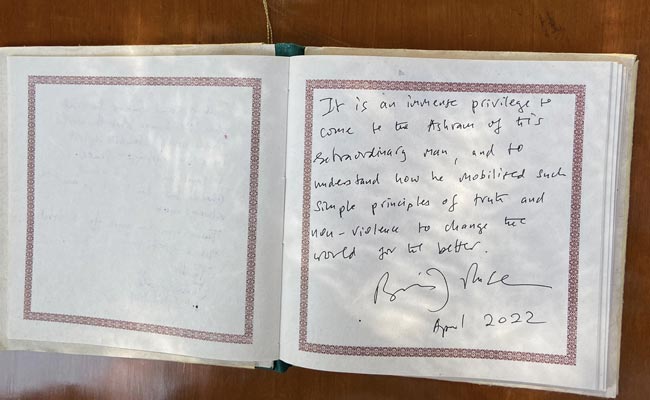 It is an immense privilege to
come to the Ashram of this
extraordinary man, and to
understand how he mobilized such
simple principles of truth and
non-violence to change the
world for the better.
April 2022